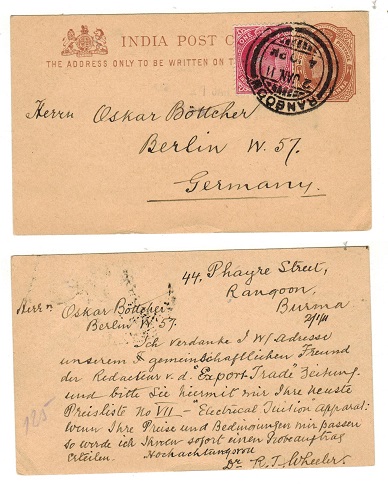 INDIA POST C
THE ADDRESS ONLY TO BE WRITTEN ON T
RANGOON
2 JAN 11
Herrn Oskar Böttcher
Berlin W. 57.
Germany.
44, Phayre Street,
Rangoon,
Burma
2/1/11
Herrn Oskar Böttcher
Berlin W 57.
Ich verdanke I W/ Adresse
unserem gemeinschaftlichen Freund
der Redacteur v. d. "Export Trade" Zeitung.
und bitte Sie hiermit mir Ihre neuste
Preisliste No VII – Electrical Tuition Apparat:
wenn Ihre Preise und Bedingungen mir passen
so werde ich Ihnen sofort einen Probeauftrag
erteilen. Hochachtungsvoll
Dr R. T. Wheeler.
125